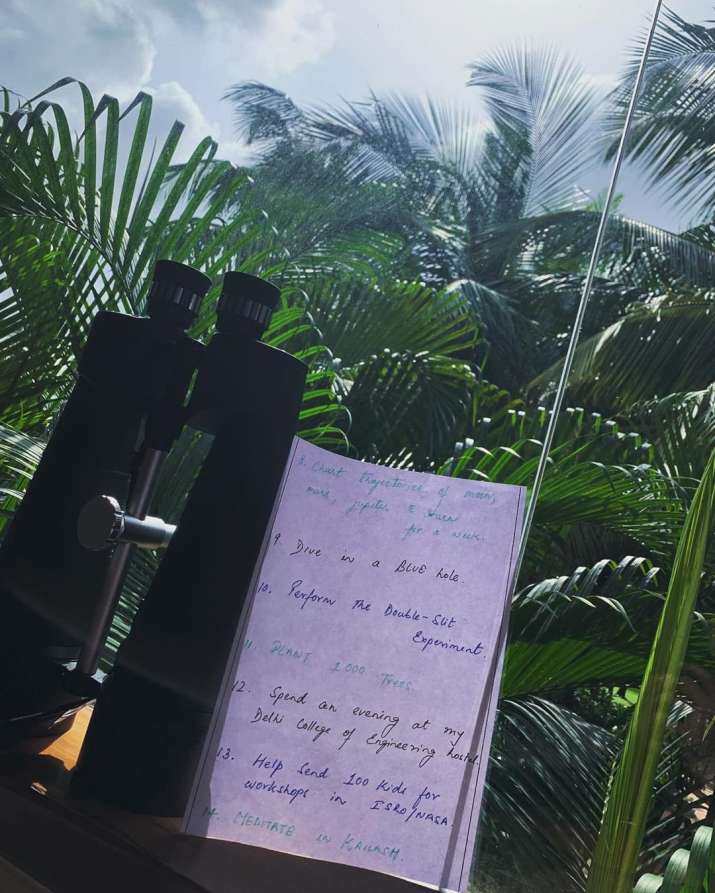 8. Chart trajectories of moon,
mars, jupiter & saturn
for a week.
9. Dive in a BLUE hole.
10. Perform the Double-Slit
Experiment.
11. PLANT 1000 Trees
12. Spend an evening at my
Delhi College of Engineering hostel
13. Help Send 100 Kids for
workshops in ISRO/NASA.
14. MEDITATE in KAILASH.